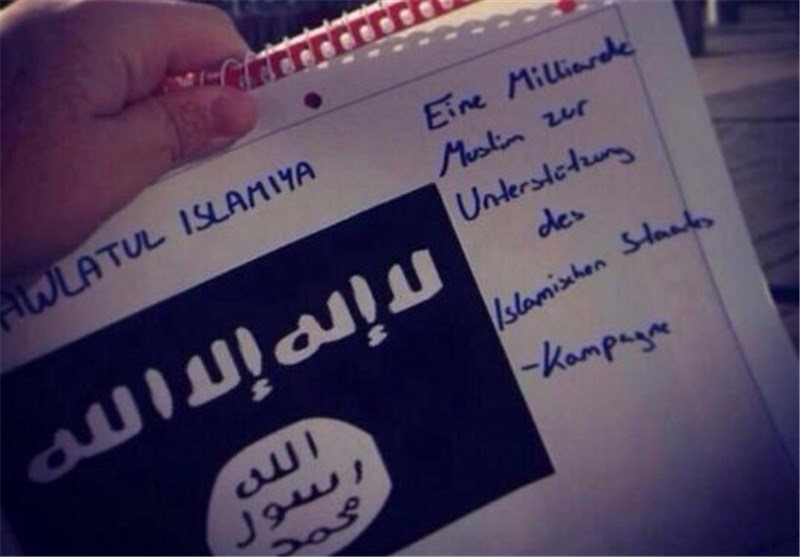 AWLATUL ISLAMIYA
Eine Milliarde
Muslim zur
Unterstützung
des
Islamischen Staates
-Kampagne
لا إله إلا الله
الله
رسول
محمد